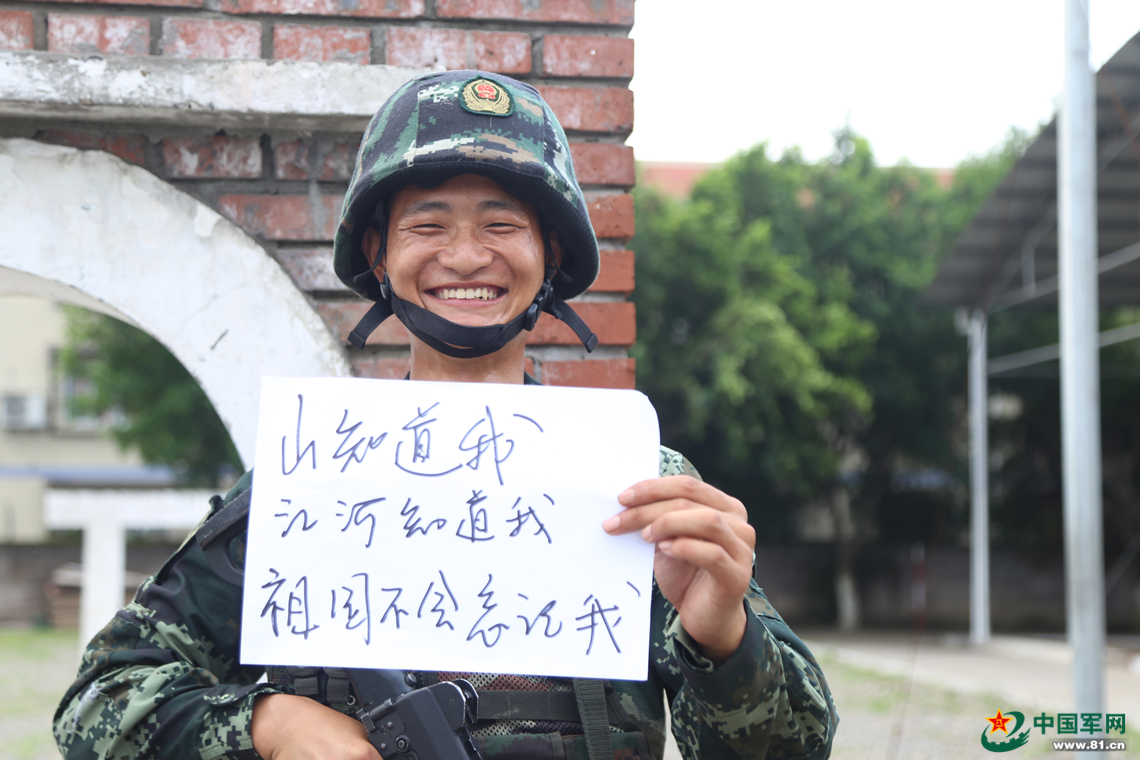 山知道我
江河知道我
祖国不会忘记我
中国军网
www.81.cn